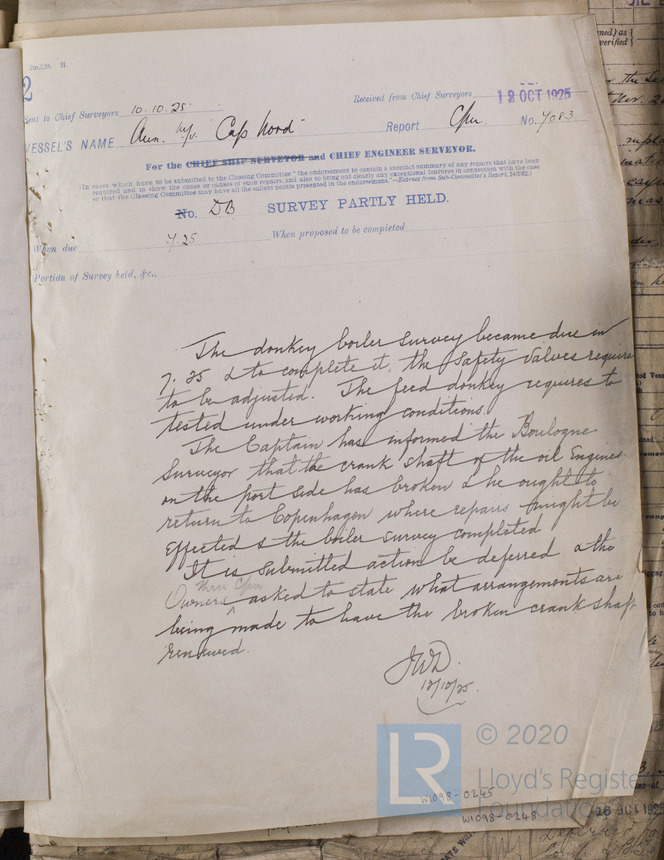 2
Sent to Chief Surveyors 10.10.25.
Received from Chief Surveyors 12 OCT 1925
VESSEL'S NAME Aux. m/v. Cap Nord
Report Cpn No. 7083
For the CHIEF SHIP SURVEYOR and CHIEF ENGINEER SURVEYOR.
(In cases which have to be submitted to the Classing Committee "the endorsement to contain a succinct summary of any repairs that have been
required and to show the cause or causes of such repairs, and also to bring out clearly any exceptional features in connection with the case
so that the Classing Committee may have all the salient points presented in the endorsement."—Extract from Sub-Committee's Report,
No. DB SURVEY PARTLY HELD.
When due 7.25 When proposed to be completed
Portion of Survey held, &c.,
The donkey boiler survey became due in
7.25 & to complete it, the Safety Valves require
to be adjusted. The feed donkey requires to
tested under working conditions.
The Captain has informed the Boulogne
Surveyor that the crank shaft of the oil Engines
on the port side has broken & he ought to
return to Copenhagen where repairs might be
effected & the boiler survey completed
It is submitted action be deferred & the
thro' Cpn
Owners ^ asked to state what arrangements are
being made to have the broken crank shaft
renewed.
JWD.
12/10/25.
LR © 2020
Lloyd's Registe
Foundation
W1098-0245
W1098-0248
16 OCT 192